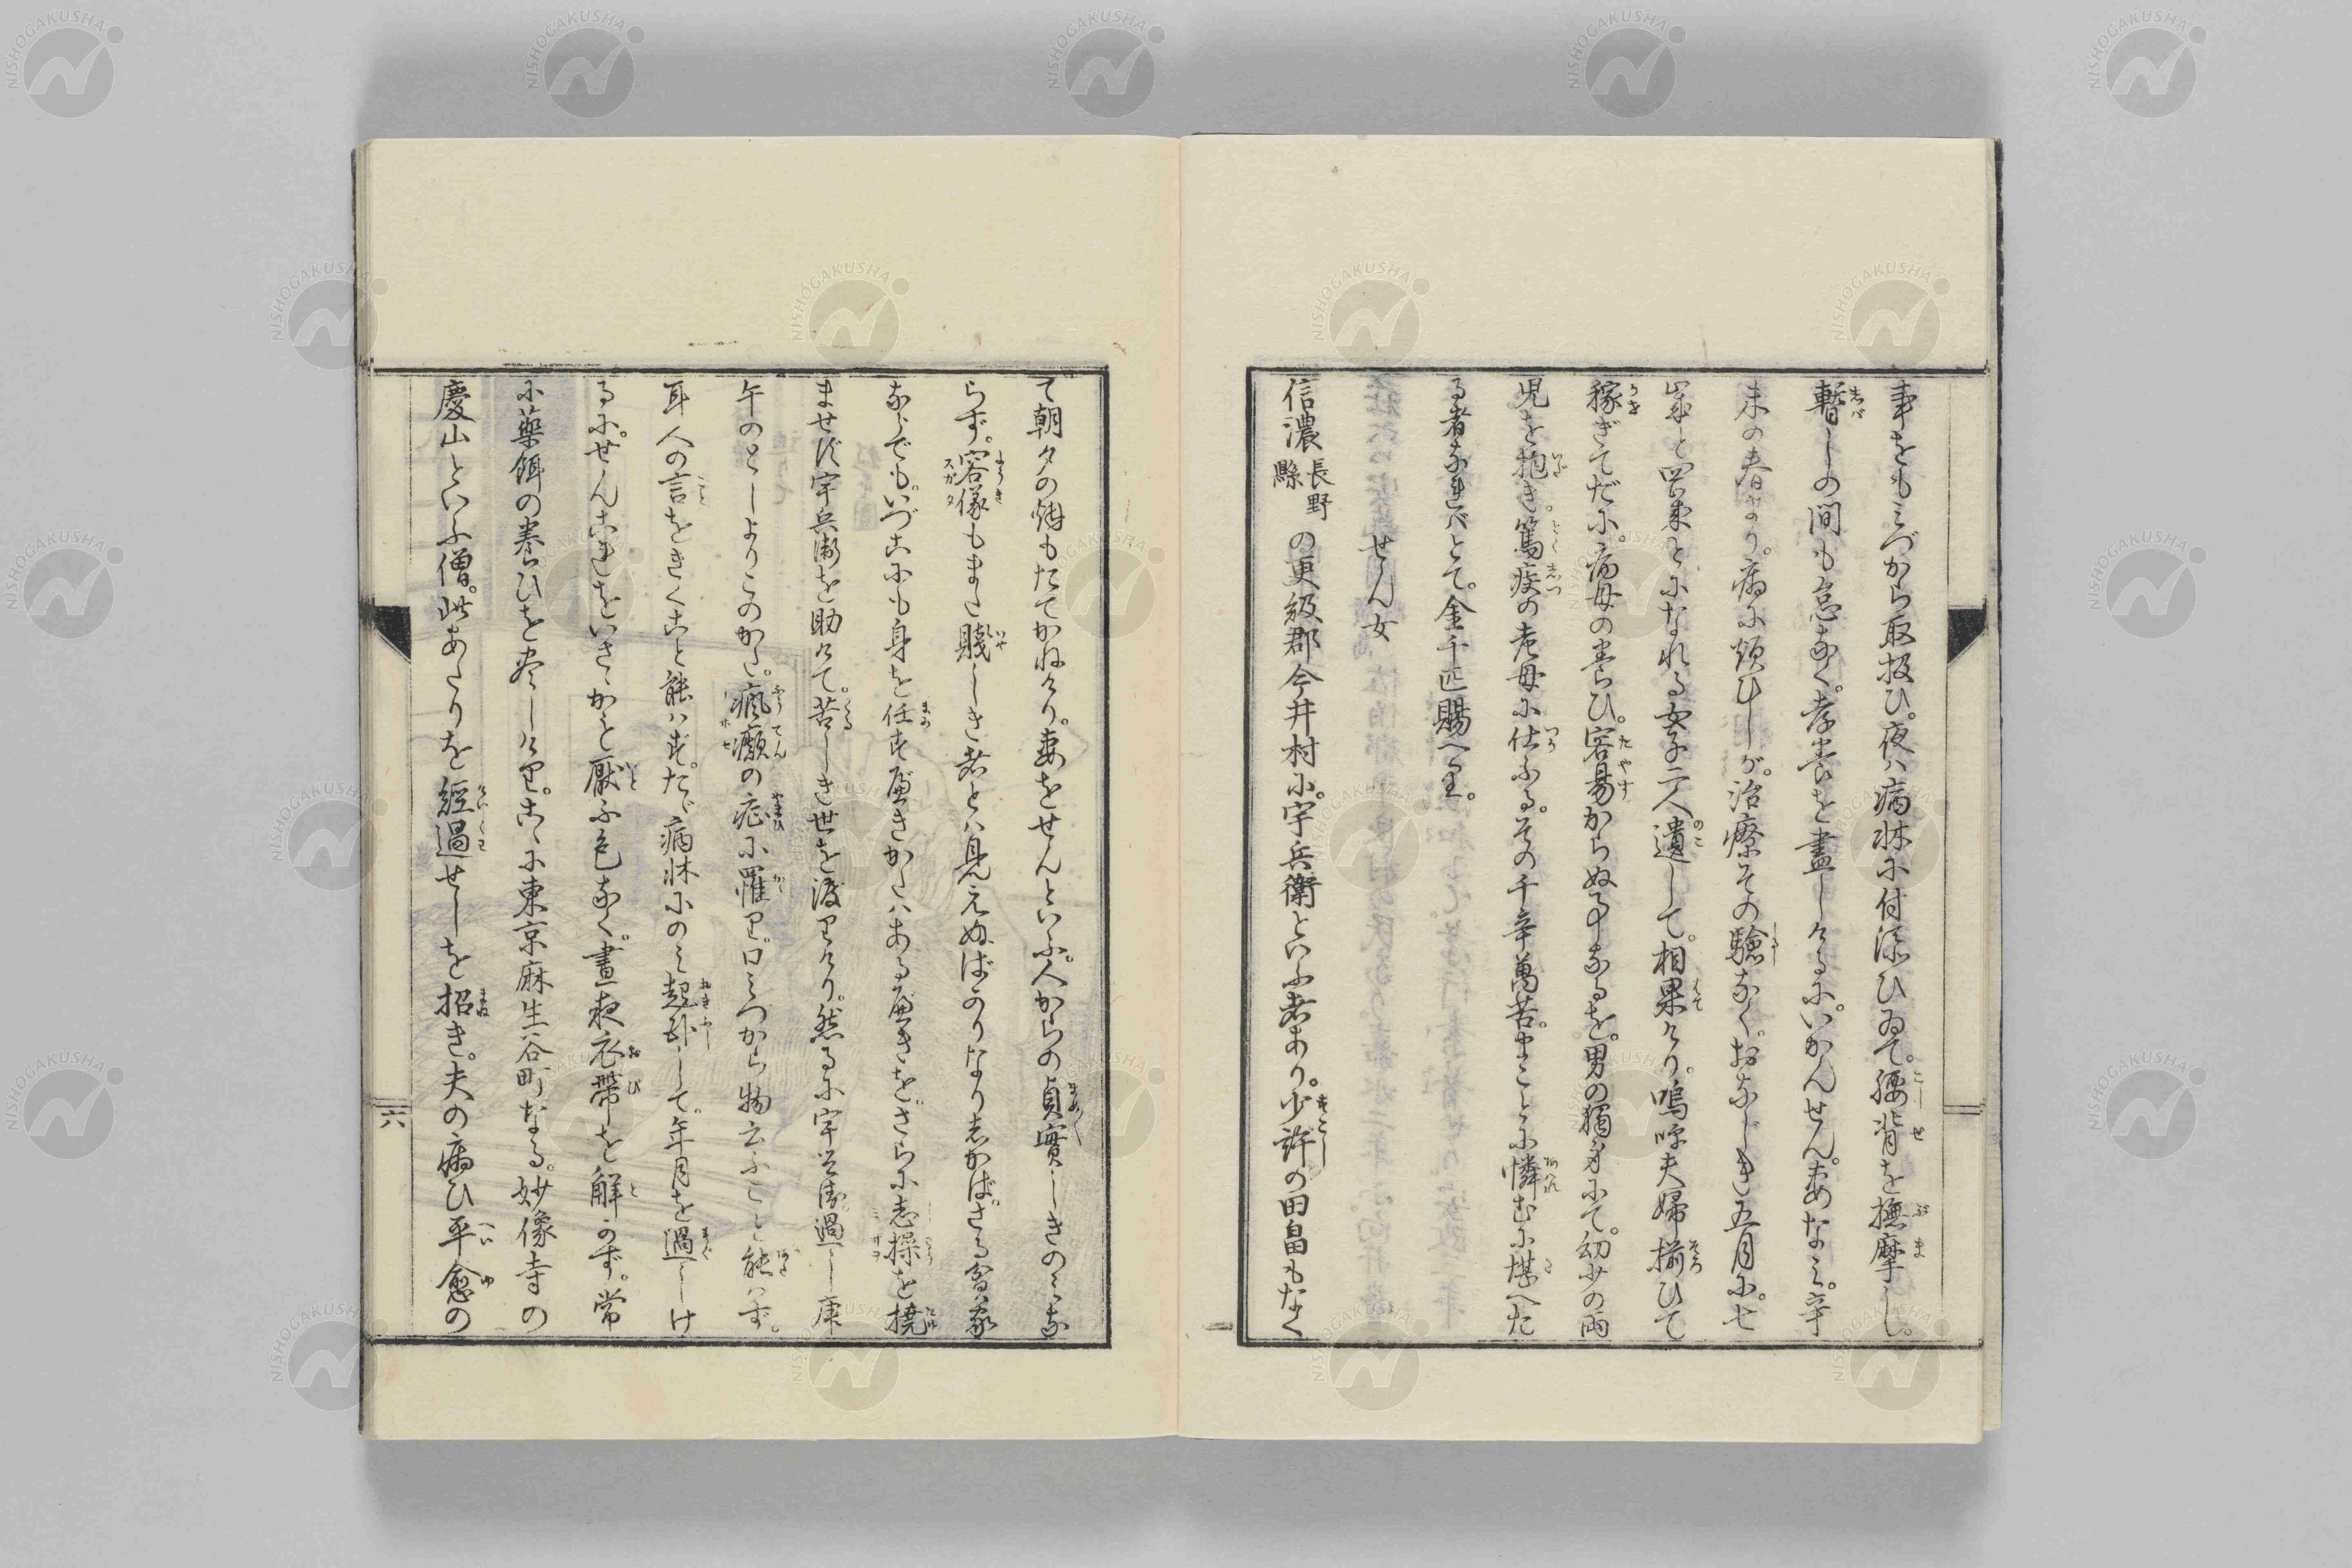 事をもみづから取扱ひ。夜ハ病牀に付添ひゐて。腰背を撫摩し。
暫しの間も怠なく。孝養を盡しけるに。いかんせん。あなミ。辛
未の春より。病に煩ひしが。治療その驗なく。おなじき五月に。七
歳と四歳とになれる女子二人遺して。相果けり。嗚呼夫婦揃ひて
稼ぎてだに。病母の養ひ。容易からぬ事なるを。男の獨身にて。幼少の両
児を抱き。篤疾の老母に仕ふる。その千辛萬苦。まことに憐むに堪へた
る者なれバとて。金千匹賜へり。
せん女
信濃長野縣の更級郡今井村に。宇兵衛といふ者あり。少許の田畠もなく
て朝夕の烟もたてかねけり。妻をせんといふ。人からの貞實しきのミな
らず。容儀もまた賤しき者とハ見えぬばかりなりしかば。さる貧家
などでも。いづこにも身を任す べきかたハあるべきを。さらに志操を撓
ませず宇兵衛を助けて。苦しき世を渡りけり。然るに宇兵衛過し庚
午のとしよりこのかた。瘋癲の症に罹り。口ミづから物云ふこと能ハず。
耳人の言をきくこと能ハず。たゞ病牀にのミ起臥しして。年月を過しけ
るに。せんこれをいさゝかも厭ふ色なく。晝夜衣帶を解かず。常
に藥餌の養ひを尽しけり。こゝに東京麻生谷町なる。妙像寺の
慶山といふ僧。此あたりを經過せしを招き。夫の病ひ平愈の
六
NISHOGAKUSHA